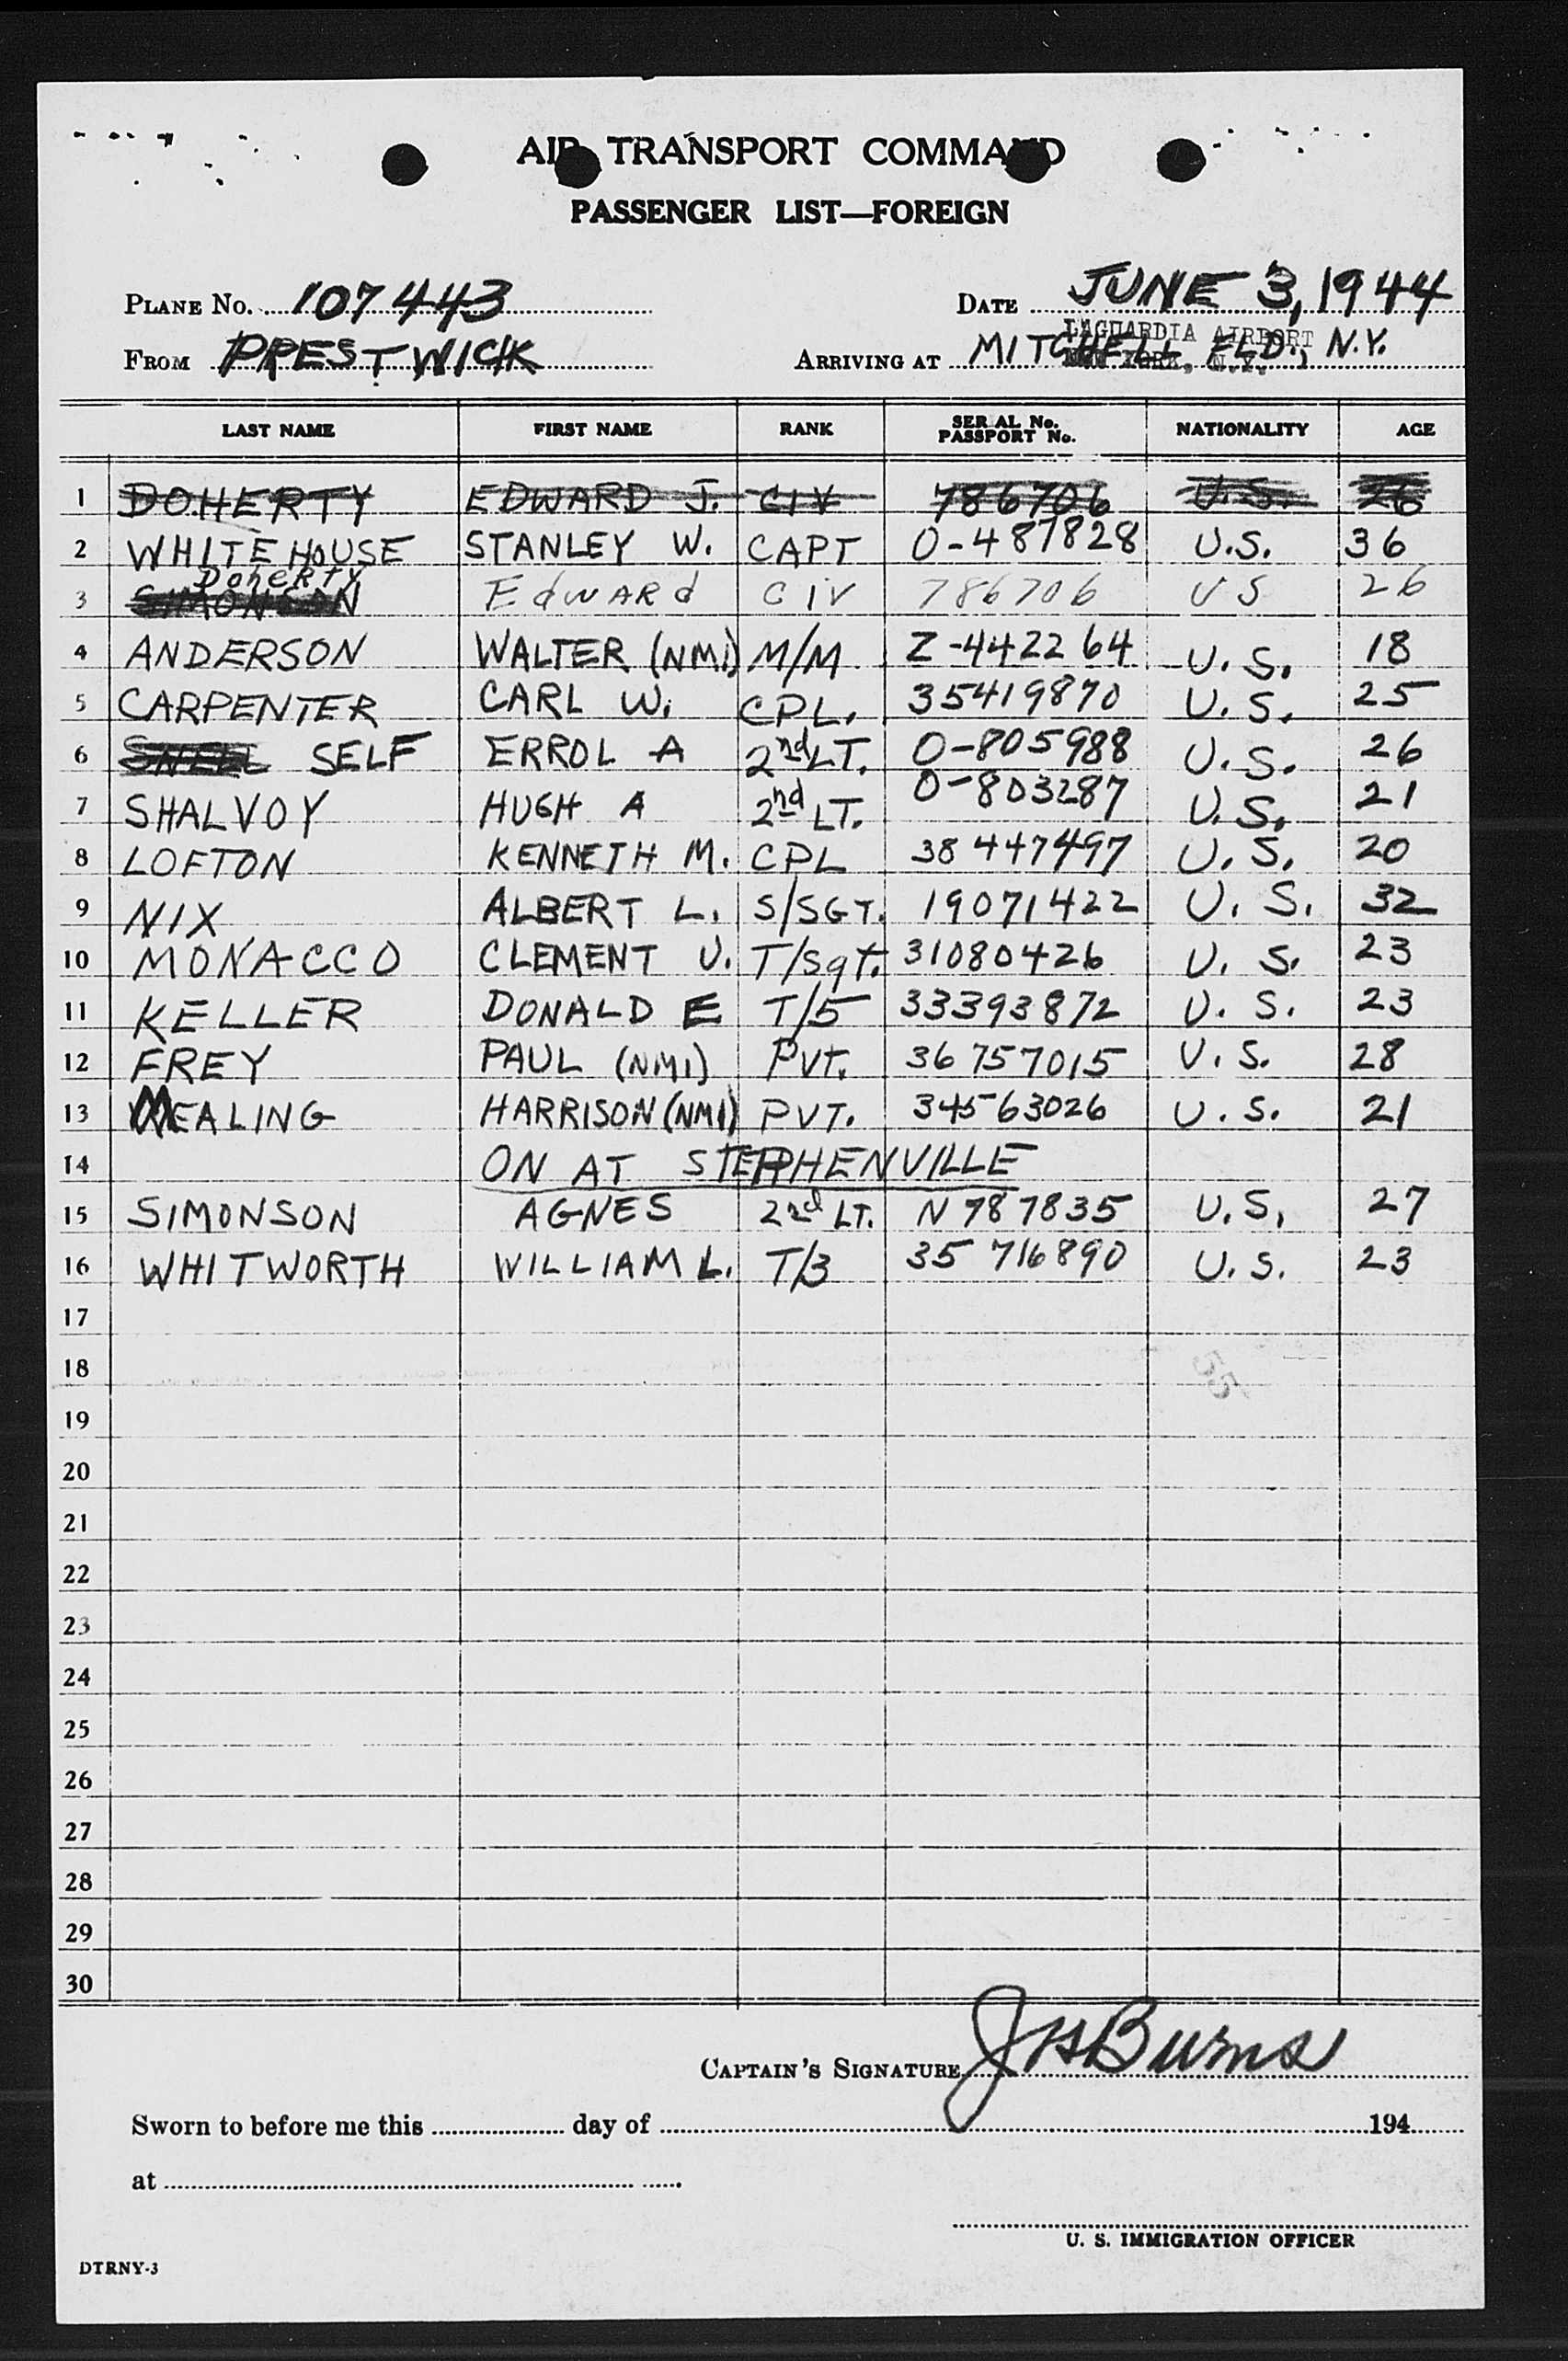 AIR TRANSPORT COMMAND
PASSENGER LIST—FOREIGN
PLANE No. 107443 DATE JUNE 3, 1944
LAGUARDIA AIRPORT
FROM PRESTWICK ARRIVING AT MITCHELL FLD., N.Y.
NEW YORK, N.Y.
LAST NAME FIRST NAME RANK SERIAL No. PASSPORT No. NATIONALITY AGE
1 DOHERTY EDWARD J. CIV 786706 U.S. 26
2 WHITEHOUSE STANLEY W. CAPT O-487828 U.S. 36
Doherty
3 SIMONSON Edward CIV 786706 US 26
4 ANDERSON WALTER (NMI) M/M Z-442264 U.S. 18
5 CARPENTER CARL W. CPL. 35419870 U.S. 25
6 SNELL SELF ERROL A 2nd LT. O-805988 U.S. 26
7 SHALVOY HUGH A 2nd LT. O-803287 U.S. 21
8 LOFTON KENNETH M. CPL 38447497 U.S. 20
9 NIX ALBERT L. S/SGT. 19071422 U.S. 32
10 MONACCO CLEMENT U. T/Sgt. 31080426 U.S. 23
11 KELLER DONALD E T/5 33393872 U.S. 23
12 FREY PAUL (NMI) PVT. 36757015 U.S. 28
13 MEALING HARRISON (NMI) PVT. 34563026 U.S. 21
14 ON AT STEPHENVILLE
15 SIMONSON AGNES 2nd LT. N787835 U.S. 27
16 WHITWORTH WILLIAM L. T/3 35 716890 U.S. 23
17
18 55
19
20
21
22
23
24
25
26
27
28
29
30
CAPTAIN'S SIGNATURE JHBurns
Sworn to before me this day of 194
at
U. S. IMMIGRATION OFFICER
DTRNY-3